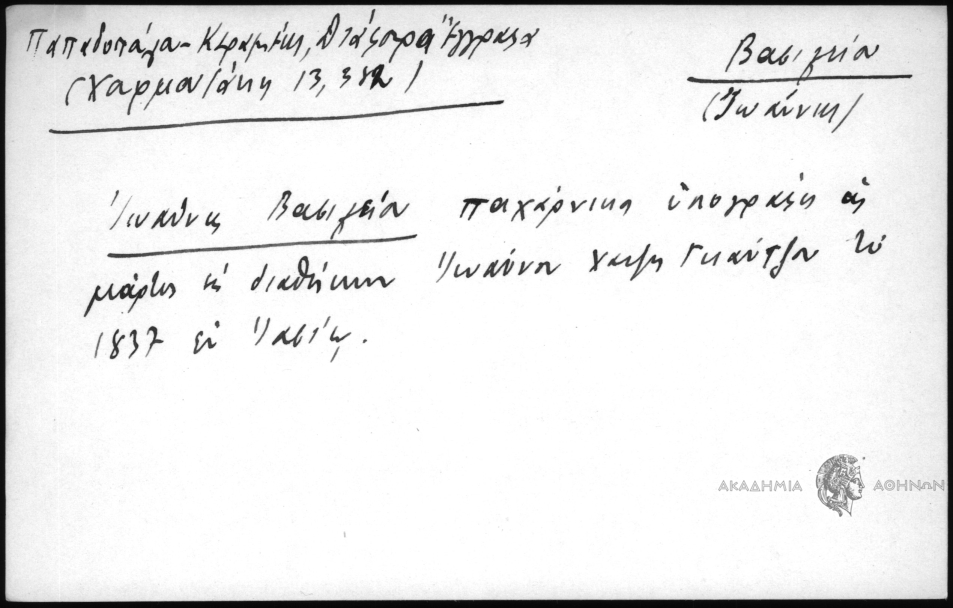 Παπαδοπούλου-Κεραμέως, Διάφορα Ἔγγραφα
(Χαρμα 13, 382)
Βασιλείου
(Ἰωάννης)
Ἰωάννης Βασιλείου παχάρνικος ὑπογράφει ὡς
μάρτυς εἰς διαθήκην Ἰωάννου Χατζῆ Γκαύτζου τῷ
1837 ἐν Ἰασίῳ.
ΑΚΑΔΗΜΙΑ ΑΘΗΝΩΝ